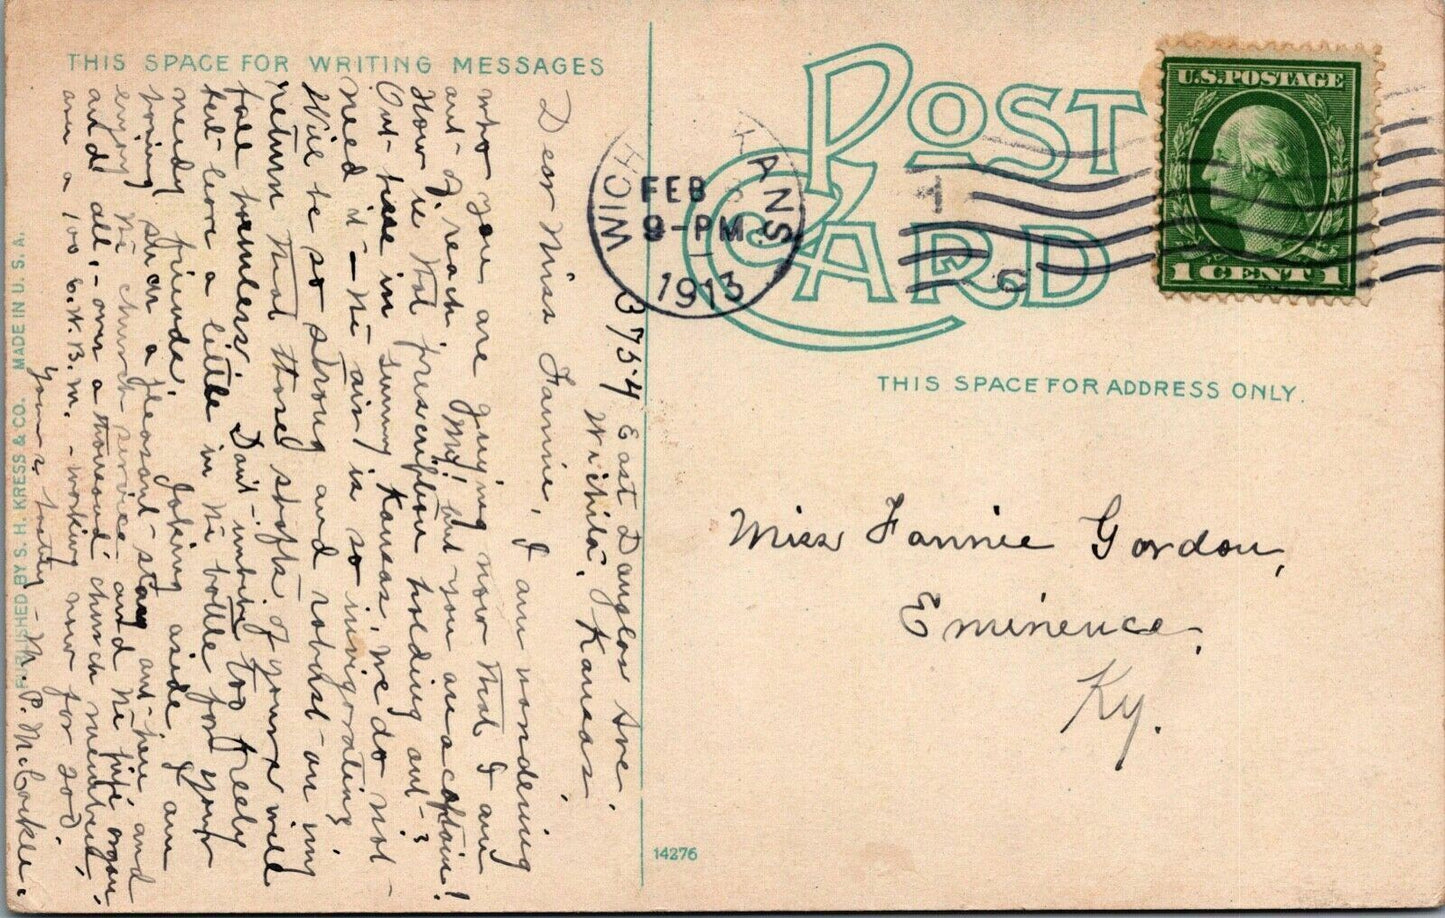 THIS SPACE FOR WRITING MESSAGES
3754 East Douglas Ave.
Wichita, Kansas.
Dear Miss Fannie, I am wondering
who you are guying now that I am
out-of reach. My! but you are a captain!
How is that prescription holding out-?
Out-here in sunny Kansas, we do not-
need it- the air is so invigorating.
Will be so strong and robust-on my
return that those shafts of yours will
fall harmless. Don't imbibe too freely
but-leave a little in the bottle for your
needy friends. Joking aside, I am
having such a pleasant-stay out-here and
enjoy the church service and the pipe organ
and all,-over a thousand church members,
over a 100 -working now for God.
Yours truly- M. P. McCorkle.
PUBLISHED BY S. H. KRESS & CO. MADE IN U. S. A.
POST CARD
WICH KANS.
FEB
9-PM
1913
1
C
U.S. POSTAGE
1 CENT 1
THIS SPACE FOR ADDRESS ONLY.
Miss Fannie Gordon,
Eminence,
Ky.
14276